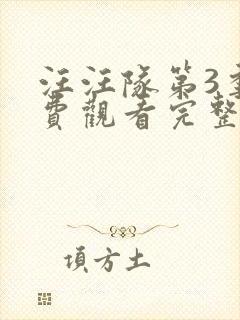 汪汪隊第3
費觀看完整
項方土